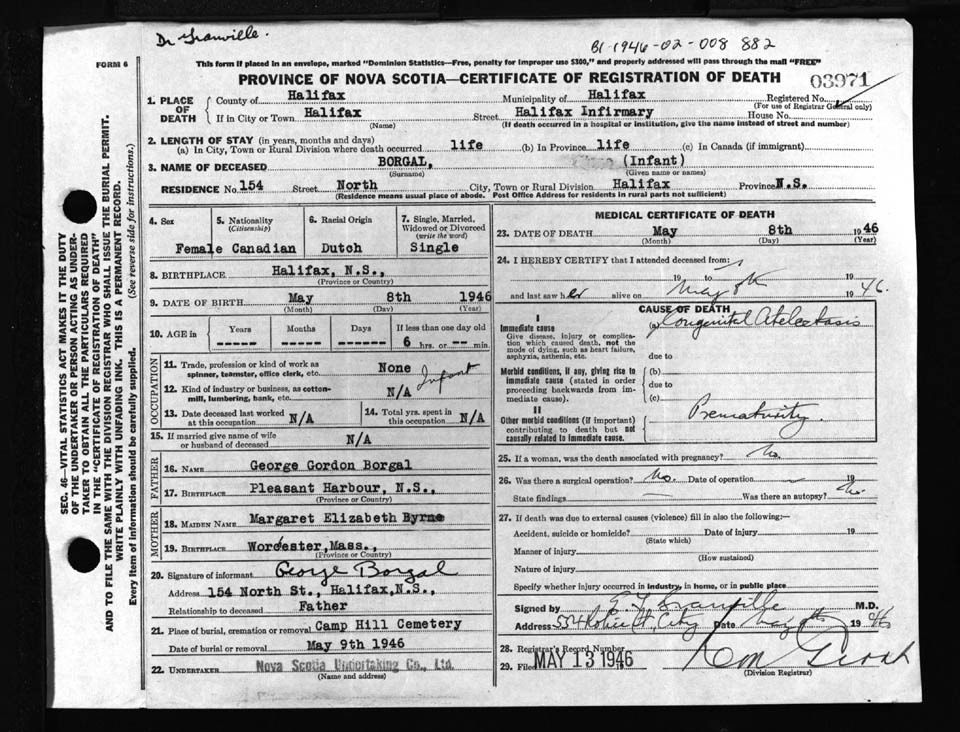 Dr Granville.
B1-1946-02-008 882
FORM 6
This form if placed in an envelope, marked "Dominion Statistics—Free, penalty for improper use $300," and properly addressed will pass through the mail "FREE"
PROVINCE OF NOVA SCOTIA—CERTIFICATE OF REGISTRATION OF DEATH
03971
1. PLACE OF DEATH
County of Halifax Municipality of Halifax Registered No.
(For use of Registrar General only)
If in City or Town Halifax Street Halifax Infirmary House No.
(Name) (If death occurred in a hospital or institution, give the name instead of street and number)
2. LENGTH OF STAY (in years, months and days)
(a) In City, Town or Rural Division where death occurred life (b) In Province life (c) In Canada (if immigrant)
3. NAME OF DECEASED BORGAL, (Infant)
(Surname) (Given name or names)
RESIDENCE No. 154 Street North City, Town or Rural Division Halifax Province N.S.
(Residence means usual place of abode. Post Office Address for residents in rural parts not sufficient)
4. Sex Female
5. Nationality (Citizenship) Canadian
6. Racial Origin Dutch
7. Single, Married, Widowed or Divorced (write the word) Single
8. BIRTHPLACE Halifax, N.S.,
(Province or Country)
9. DATE OF BIRTH May 8th 1946
(Month) (Day) (Year)
10. AGE in Years Months Days If less than one day old
----- ----- ----- 6 hrs. or -- min.
OCCUPATION
11. Trade, profession or kind of work as spinner, teamster, office clerk, etc. None
12. Kind of industry or business, as cotton-mill, lumbering, bank, etc. N/A Infant
13. Date deceased last worked at this occupation N/A
14. Total yrs. spent in this occupation N/A
15. If married give name of wife or husband of deceased N/A
FATHER
16. NAME George Gordon Borgal
17. BIRTHPLACE Pleasant Harbour, N.S.,
(Province or Country)
MOTHER
18. MAIDEN NAME Margaret Elizabeth Byrne
19. BIRTHPLACE Worcester, Mass.,
(Province or Country)
20. Signature of informant George Borgal
Address 154 North St., Halifax, N.S.,
Relationship to deceased Father
21. Place of burial, cremation or removal Camp Hill Cemetery
Date of burial or removal May 9th 1946
22. UNDERTAKER Nova Scotia Undertaking Co., Ltd.
(Name and address)
MEDICAL CERTIFICATE OF DEATH
23. DATE OF DEATH May 8th 1946
(Month) (Day) (Year)
24. I HEREBY CERTIFY that I attended deceased from
19 to May 8th 19
and last saw her alive on 1946.
CAUSE OF DEATH
I
Immediate cause
Give disease, injury or complication which caused death, not the mode of dying, such as heart failure, asphyxia, asthenia, etc.
(a) Congenital Atelectasis
due to
Morbid conditions, if any, giving rise to immediate cause (stated in order proceeding backwards from immediate cause).
(b)
due to
(c)
II
Other morbid conditions (if important) contributing to death but not causally related to immediate cause.
Prematurity.
25. If a woman, was the death associated with pregnancy? No.
26. Was there a surgical operation? No. Date of operation 19
State findings Was there an autopsy? No.
27. If death was due to external causes (violence) fill in also the following:—
Accident, suicide or homicide? Date of injury 19
(State which)
Manner of injury
(How sustained)
Nature of injury
Specify whether injury occurred in industry, in home, or in public place
Signed by E. F. Granville M.D.
Address City Date May 1946
28. Registrar's Record Number
29. Filed MAY 13 1946
(Division Registrar)
SEC. 46—VITAL STATISTICS ACT MAKES IT THE DUTY
OF THE UNDERTAKER OR PERSON ACTING AS UNDER-
TAKER TO OBTAIN ALL THE PARTICULARS REQUIRED
IN THE "CERTIFICATE OF REGISTRATION OF DEATH"
AND TO FILE THE SAME WITH THE DIVISION REGISTRAR WHO SHALL ISSUE THE BURIAL PERMIT.
WRITE PLAINLY WITH UNFADING INK. THIS IS A PERMANENT RECORD.
Every item of information should be carefully supplied. (See reverse side for instructions.)